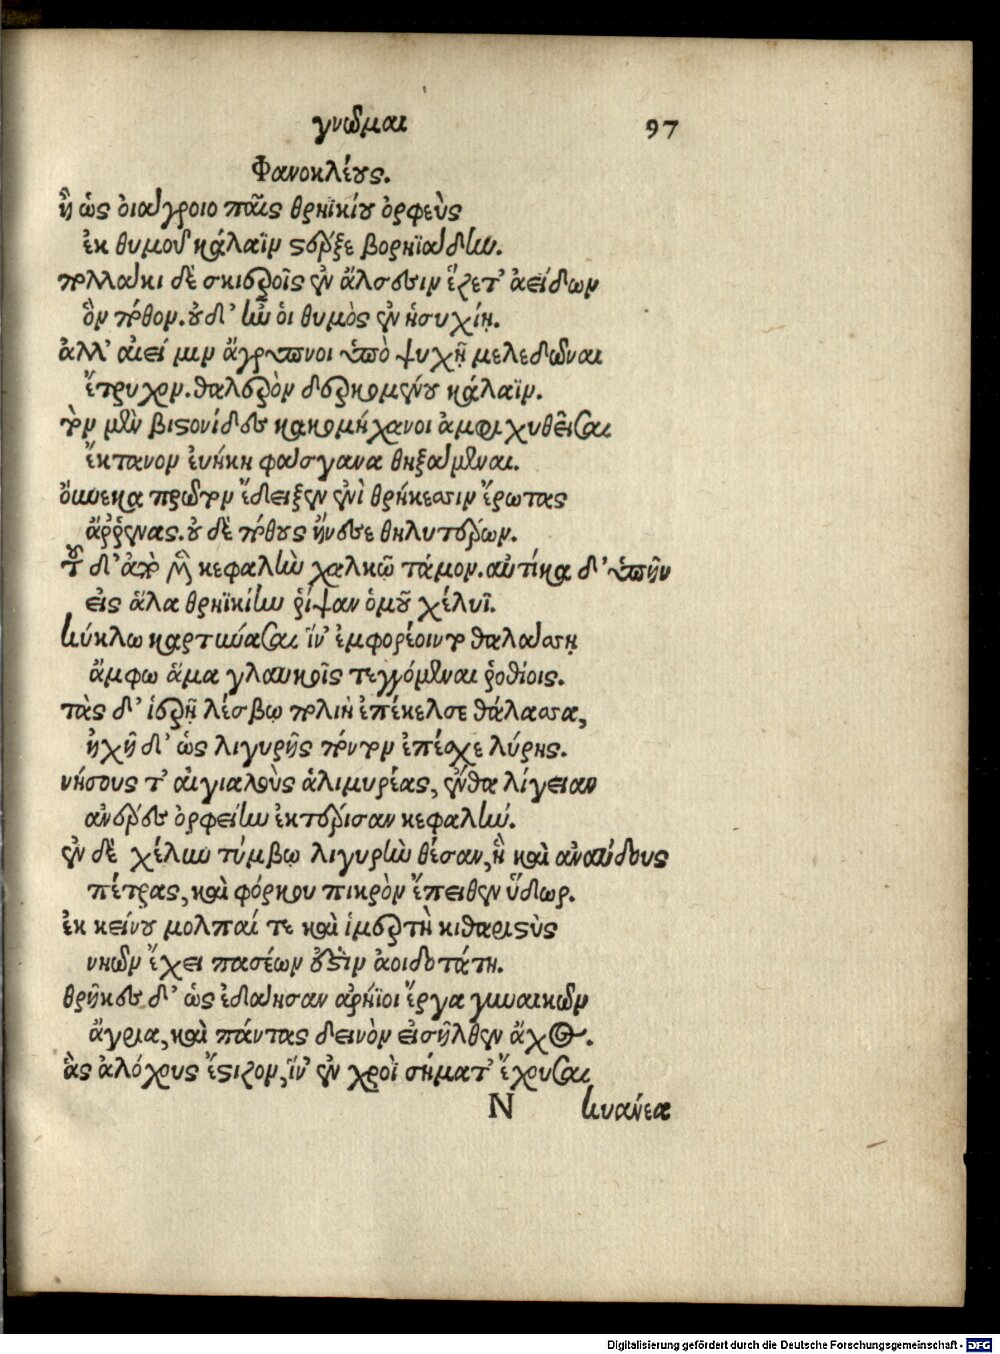 γνῶμαι 97
Φανοκλέους.
ἢ ὡς ὀιαγροιο πάϊς θρηϊκίου ὀρφεὺς
ἐκ θυμοῦ κάλαϊν στέρξε βορηϊάδην.
πολλάκι δὲ σκιεροῖς ἐν ἄλσεσιν ἕζετ' ἀείδων
ὃν πόθον. οὐδ' ἦν ὁι θυμὸς ἐν ἡσυχίῃ.
ἀλλ' αἰεί μιν ἄγρυπνοι ὑπὸ ψυχῇ μελεδῶναι
ἔτρυχον. θαλερὸν δερκομένου κάλαϊν.
τὸν μὲν βιστονίδες κακομήχανοι ἀμφιχυθεῖσαι
ἔκτανον ἐυήκη φάσγανα θηξάμεναι.
ὅυνεκα πρῶτον ἔδειξεν ἐνὶ θρήκεσσιν ἔρωτας
ἄῤῥενας. οὐ δὲ πόθους ἤνεσε θηλυτέρων.
τοῦ δ' ἀπὸ μὲν κεφαλὴν χαλκῶ τάμον. αὐτίκα δ' ὑπῆν
εἰς ἅλα θρηϊκίην ῥίψαν ὁμοῦ χέλυϊ.
κύκλω καρτύνασαι ἵν' ἐμφορέοιντο θαλάσσῃ
ἄμφω ἅμα γλαυκοῖς τεγγόμεναι ῥοθίοις.
τὰς δ' ἱερῇ λέσβῳ πολιὴ ἐπέκελσε θάλασσα,
ἠχὴ δ' ὡς λιγυρῆς πόντον ἐπέσχε λύρης.
νήσους τ' αἰγιαλοὺς ἁλιμυρέας, ἔνθα λίγειαν
ἀνέρες ὀρφείην ἐκτέρισαν κεφαλήν.
ἐν δὲ χέλυν τύμβῳ λιγυρὴν θέσαν, ἢ καὶ ἀναύδους
πέτρας, καὶ φόρκου πικρὸν ἔπειθεν ὕδωρ.
ἐκ κείνου μολπαί τε καὶ ἱμερτὴ κιθαριστὺς
νηῶν ἔχει πασέων οὖσιν ἀοιδοτάτη.
θρῆκες δ' ὡς ἐδάησαν ἀρήϊοι ἔργα γυναικῶν
ἄγρια, καὶ πάντας δεινὸν εἰσῆλθεν ἄχος.
ἃς ἀλόχους ἔστιζον, ἵν' ἐν χροῒ σήματ' ἔχουσαι
N κυανέα
Digitalisierung gefördert durch die Deutsche Forschungsgemeinschaft - DFG